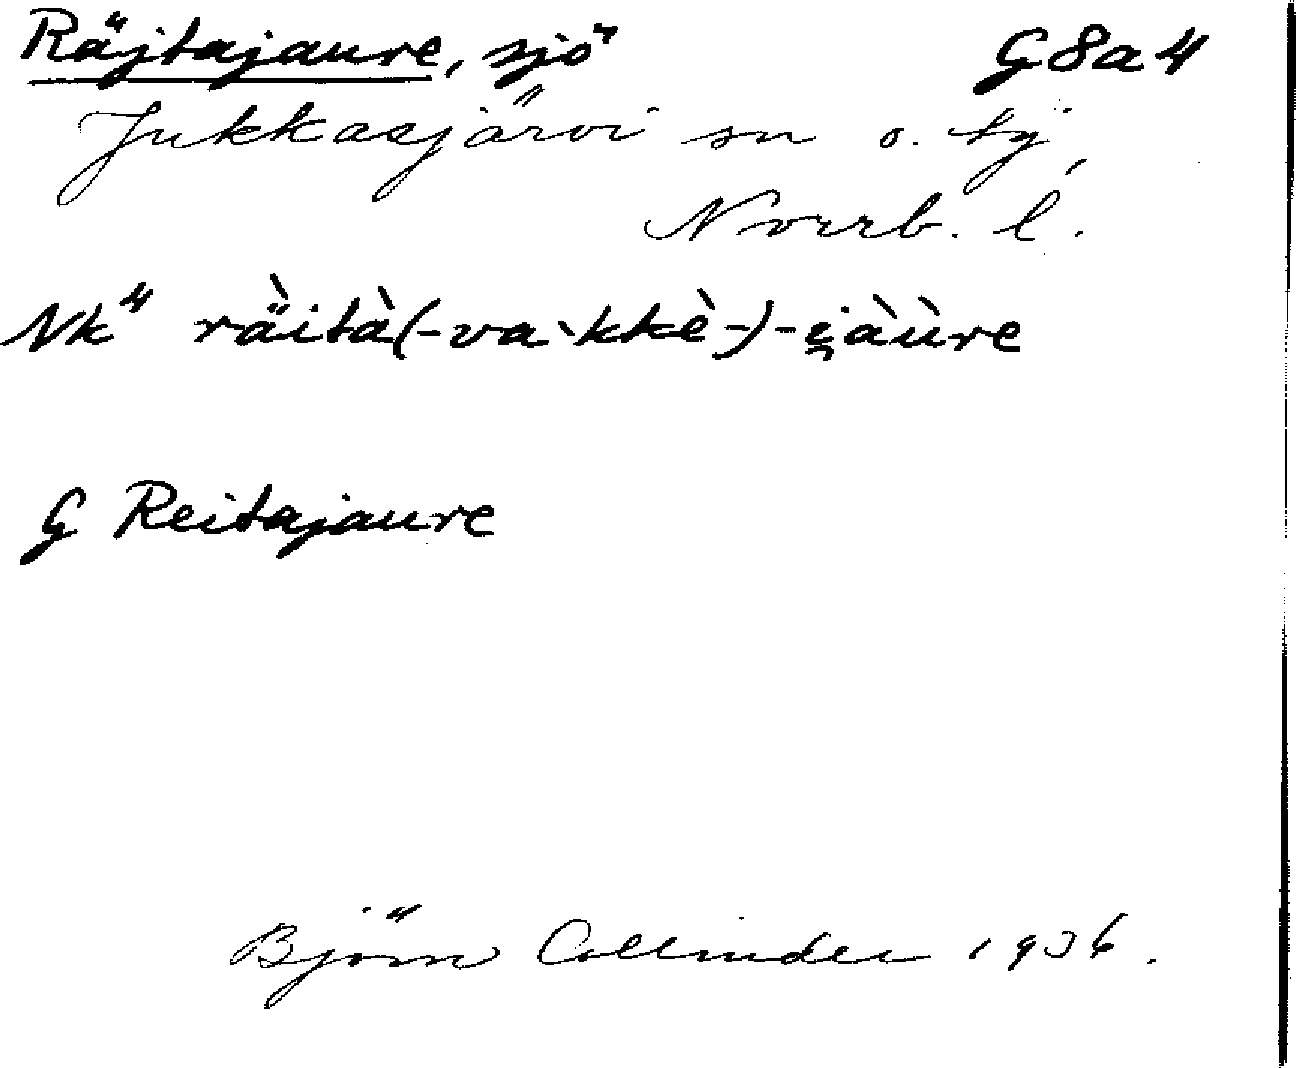 Räjtajaure, sjö G8a4
Jukkasjärvi sn o. tg,
Norrb. l.
Nk" rä̀ità(-va·kkè-)-i̯àùre
G Reitajaure
Björn Collinder 1936.